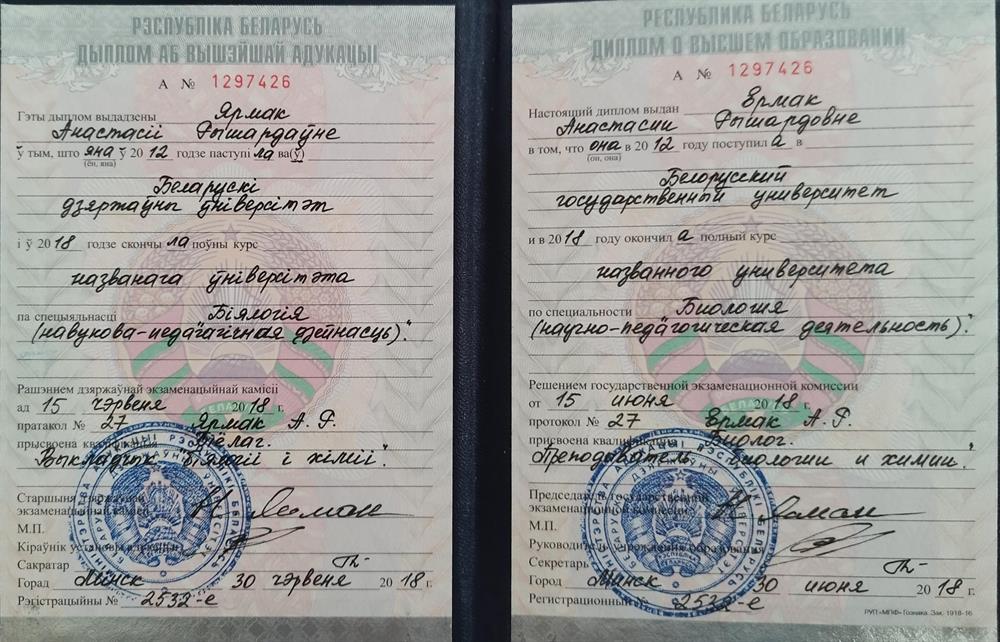 РЭСПУБЛІКА БЕЛАРУСЬ
ДЫПЛОМ АБ ВЫШЭЙШАЙ АДУКАЦЫІ
А № 1297426
Гэты дыплом выдадзены Ярмак
Анастасіі Рышардаўне
ў тым, што яна ў 2012 годзе паступіла ва(ў)
(ён, яна)
"Беларускі
дзяржаўны ўніверсітэт
і ў 2018 годзе скончыла поўны курс
названага ўніверсітэта
па спецыяльнасці "Біялогія
(навукова-педагагічная дзейнасць)".
Рашэннем дзяржаўнай экзаменацыйнай камісіі
ад 15 чэрвеня 2018 г.
пратакол № 27 Ярмак А. Р.
прысвоена кваліфікацыя "Біёлаг.
Выкладчык біялогіі і хіміі".
Старшыня дзяржаўнай
экзаменацыйнай камісіі
М.П.
Кіраўнік установы адукацыі
Сакратар
Горад Мінск 30 чэрвеня 2018 г.
Рэгістрацыйны № 2532-е
РЕСПУБЛИКА БЕЛАРУСЬ
ДИПЛОМ О ВЫСШЕМ ОБРАЗОВАНИИ
А № 1297426
Настоящий диплом выдан Ермак
Анастасии Рышардовне
в том, что она в 2012 году поступила в
(он, она)
"Белорусский
государственный университет
и в 2018 году окончила полный курс
названного университета
по специальности "Биология
(научно-педагогическая деятельность)".
Решением государственной экзаменационной комиссии
от 15 июня 2018 г.
протокол № 27 Ермак А. Р.
присвоена квалификация "Биолог.
Преподаватель биологии и химии".
Председатель государственной
экзаменационной комиссии
М.П.
Руководитель учреждения образования
Секретарь
Город Минск 30 июня 2018 г.
Регистрационный № 2532-е
РУП «МПФ» Гознака. Зак. 1918-16